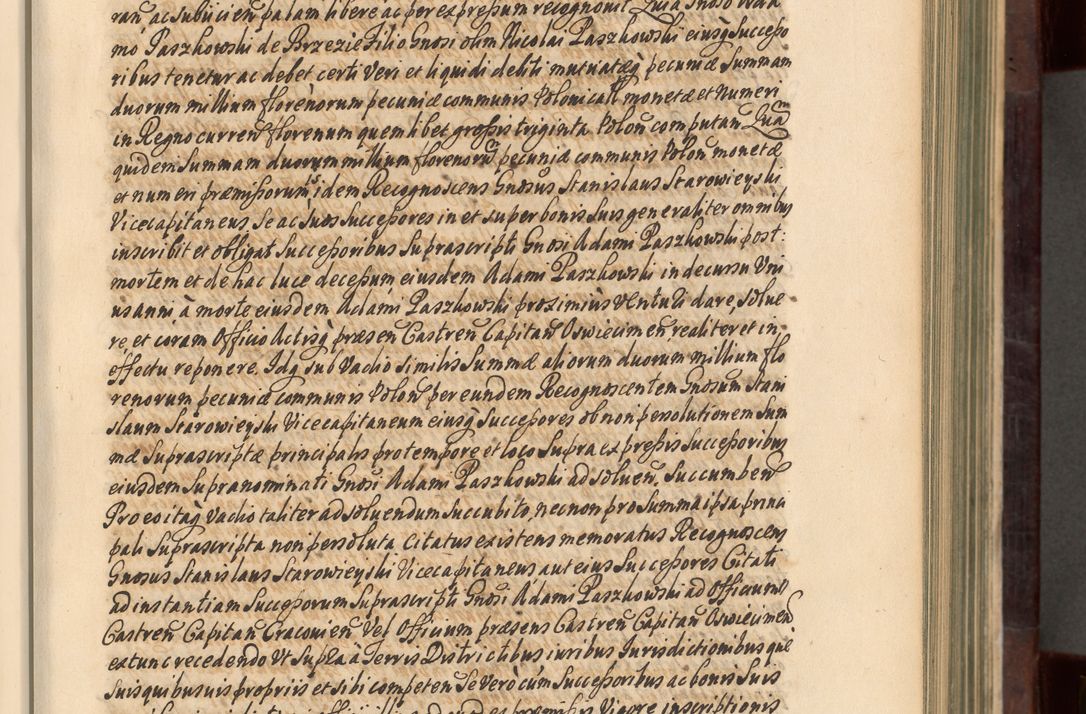 ran ac subiicien palam libere ac per expressum recognovit Quia Gnoso Ada
mo Paszkowski de Brzezie Filio Gnosi olim Nicolai Paszkowski eiusq Successo
ribus tenetur ac debet certi veri et liquidi debiti mutuatæq pecuniæ Summam
duorum millium florenorum pecuniæ communis Polonicall monetæ et numeri
in Regno curren florenum quemlibet grossis triginta Polon computan Quam
quidem Summam duorum millium florenorum pecuniæ communis Polon monetæ
et numeri præmissorum idem Recognoscens Gnosus Stanislaus Starowieyski
Vicecapitaneus Se ac Suos Successores in et super bonis Suis generaliter omnibus
inscribit et obligat Successoribus Suprascripti Gnosi Adami Paszkowski post
mortem et de hac luce decessum eiusdem Adami Paszkowski in decursu Uni
us anni à morte eiusdem Adami Paszkowski proximius venturi dare, solve
re, et coram Officio Actisq præsen Castren Capitan Oswiecimen, realiter et in
effectu reponere. Idq sub Vadio similis Summæ aliorum duorum millium flo
renorum pecuniæ communis Polon per eundem Recognoscentem Gnosum Stani
slaum Starowieyski Vicecapitaneum eiusq Successores ob non persolutionem Sum
mæ Suprascriptæ principalis pro tempore et loco Supra expressis Successoribus
eiusdem Supranominati Gnosi Adami Paszkowski adsolven, Succumben
Pro eo itaq Vadio taliter adsolvendum Succubito, nec non pro Summa ipsa princi
pali Suprascripta non persoluta Citatus existens memoratus Recognoscens
Gnosus Stanislaus Starowieyski Vicecapitaneus aut eius Successores Citati
ad instantiam Successorum Suprascripti Gnosi Adami Paszkowski ad Officium
Castren Capitan Cracovien Vel Officium præsens Castren Capitan Oswiecimen
extunc recedendo Ut Supra à Terris Districtibus iuribus Iurisdictionibusque
Suis quibusvis propriis et sibi competen Se vero cum Successoribus ac bonis Suis
ex præmissis Vigore inscriptionis